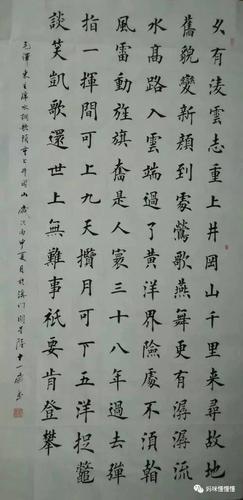 久有凌雲志重上井岡山千里来尋故地
舊貌變新顏到處鶯歌燕舞更有潺潺流
水高路入雲端過了黄洋界險處不須
風雷動旌旗奮是人寰三十八年過去彈
指一揮間可上九天攬月可下五洋捉鼈
談笑凱歌還世上無難事祇要肯登攀
毛澤東主席水調歌頭重上井岡山 歲次丙申夏月於
妈咪懂懂懂